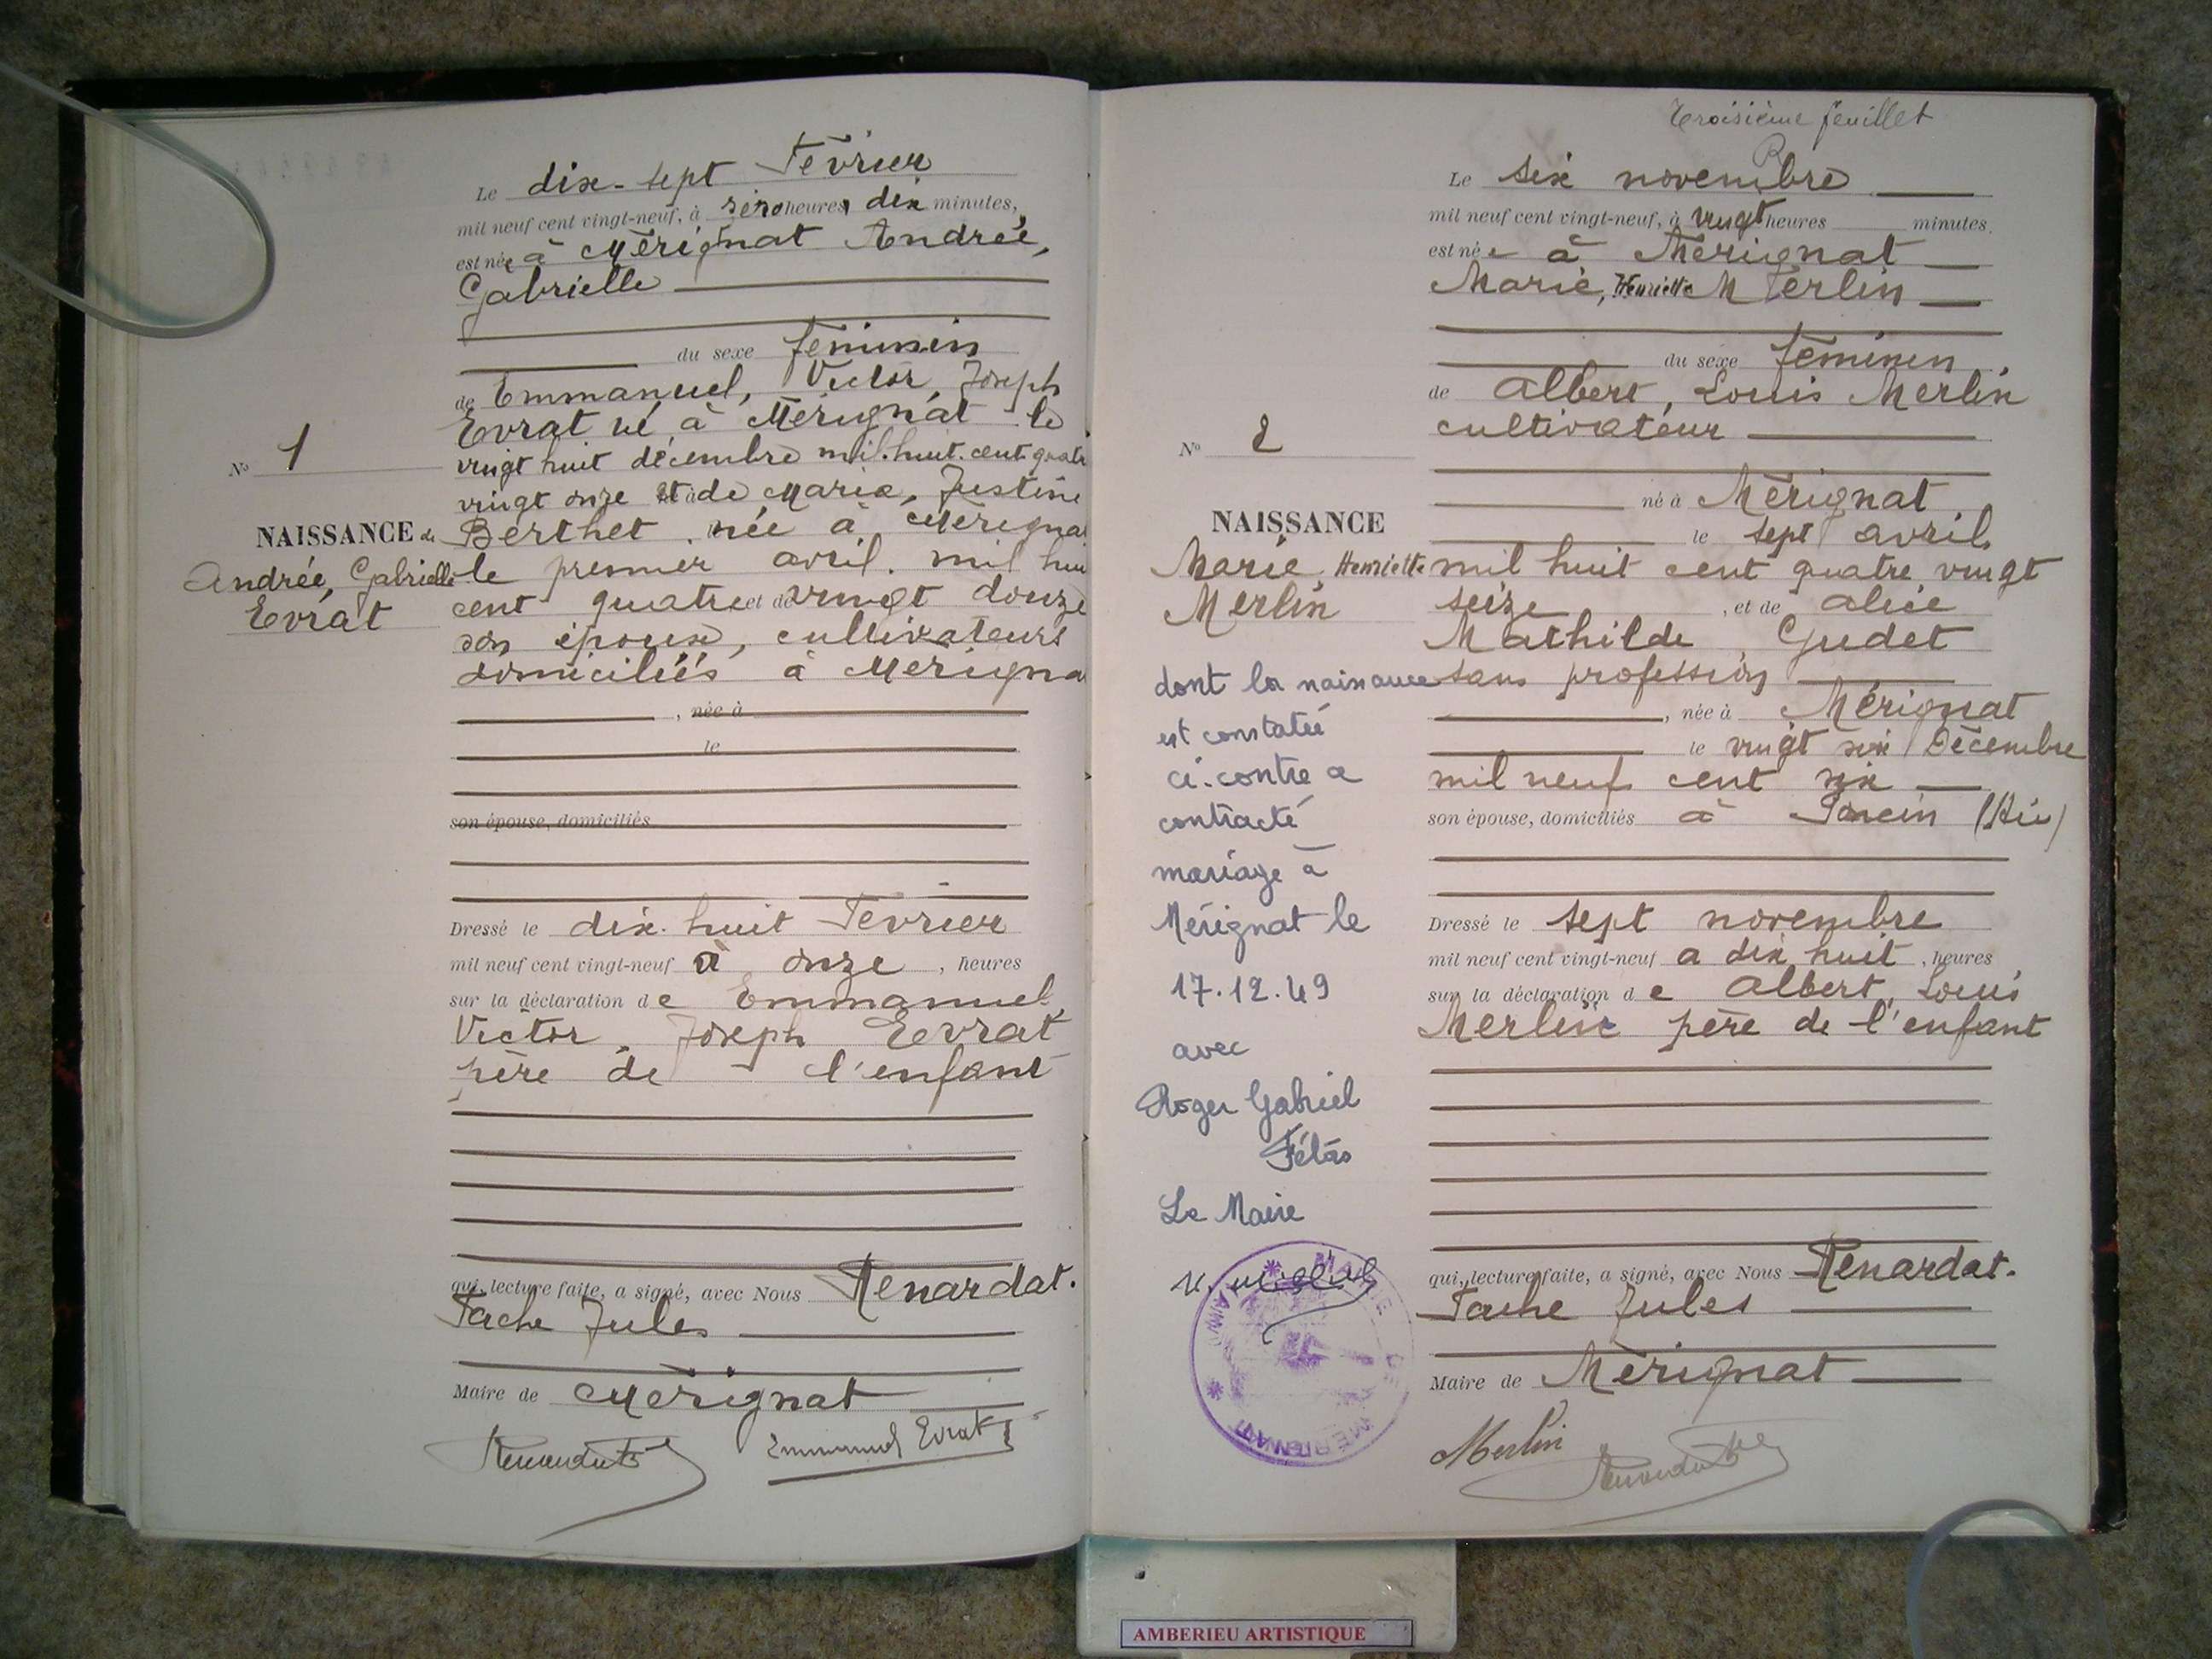 Le dix-sept Février
mil neuf cent vingt-neuf, à zéro heures, dix minutes,
est née à Mérignat Andrée,
Gabrielle
du sexe féminin
de Emmanuel, Victor, Joseph
Evrat né à Mérignat le
vingt huit décembre mil. huit. cent quatre
N° 1
vingt onze et de Maria, Justine
NAISSANCE de
Andrée, Gabrielle
Evrat
Berthet. née à Mérigna
le premier avril. mil hui
cent quatre et de vingt douze
son épouse, cultivateurs
domiciliés à Mérigna
, née à
le
son épouse, domiciliés
Dressé le dix. huit Février
mil neuf cent vingt-neuf à onze, heures
sur la déclaration de Emmanuel,
Victor, Joseph Evrat
père de l'enfant
qui, lecture faite, a signé, avec Nous Renardat.
Tache Jules
Maire de Mérignat
Emmanuel Evrat
Troisième feuillet
Le six novembre
mil neuf cent vingt-neuf, à vingt heures minutes.
est née à Mérignat
Marie, Henriette Merlin
du sexe féminin
de Albert, Louis Merlin
cultivateur
N° 2
né à Mérignat
le sept avril
NAISSANCE
Marie, Henriette
Merlin
mil huit cent quatre vingt
seize, et de Alice
Mathilde Gudet
sans profession
, née à Mérignat
le vingt six Décembre
mil neuf cent six
son épouse, domiciliés à
dont la naissance
est constatée
ci-contre a
contracté
mariage à
Mérignat le
17.12.49
avec
Roger Gabriel
Félas
Le Maire
MAIRIE DE MERIGNAT
AIN
Dressé le sept novembre
mil neuf cent vingt-neuf a dix huit, heures
sur la déclaration de Albert, Louis
Merlin père de l'enfant
qui, lecture faite, a signé, avec Nous Renardat.
Tache Jules
Maire de Mérignat
Merlin
AMBERIEU ARTISTIQUE